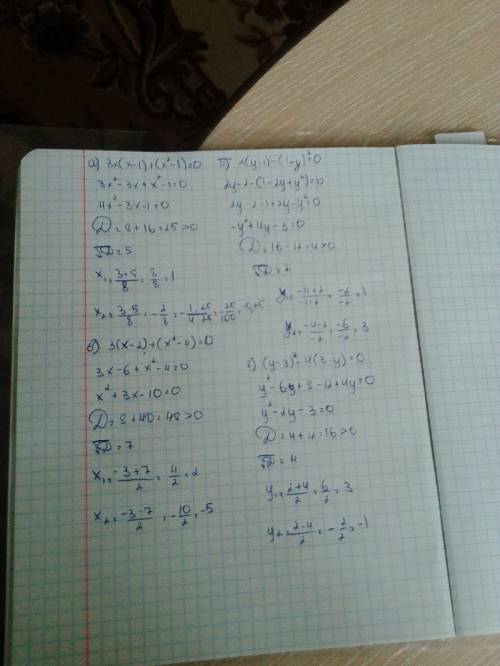 а) 3x(x-1)+(x²-1)=0
3x²-3x+x²-1=0
4x²-3x-1=0
D=9+16=25>0
√D=5
x₁=3+5/8=8/8=1
x₂=3-5/8=-2/8=-1·25/4·25=-25/100=-0,25
б) 2(y-1)-(1-y)²=0
2y-2-(1-2y+y²)=0
2y-2-1+2y-y²=0
-y²+4y-3=0
D=16-12=4>0
√D=2
y₁=-4+2/-2=-2/-2=1
y₂=-4-2/-2=-6/-2=3
в) 3(x-2)+(x²-4)=0
3x-6+x²-4=0
x²+3x-10=0
D=9+40=49>0
√D=7
x₁=-3+7/2=4/2=2
x₂=-3-7/2=-10/2=-5
г) (y-3)²-4(3-y)=0
y²-6y+9-12+4y=0
y²-2y-3=0
D=4+12=16>0
√D=4
y₁=2+4/2=6/2=3
y₂=2-4/2=-2/2=-1